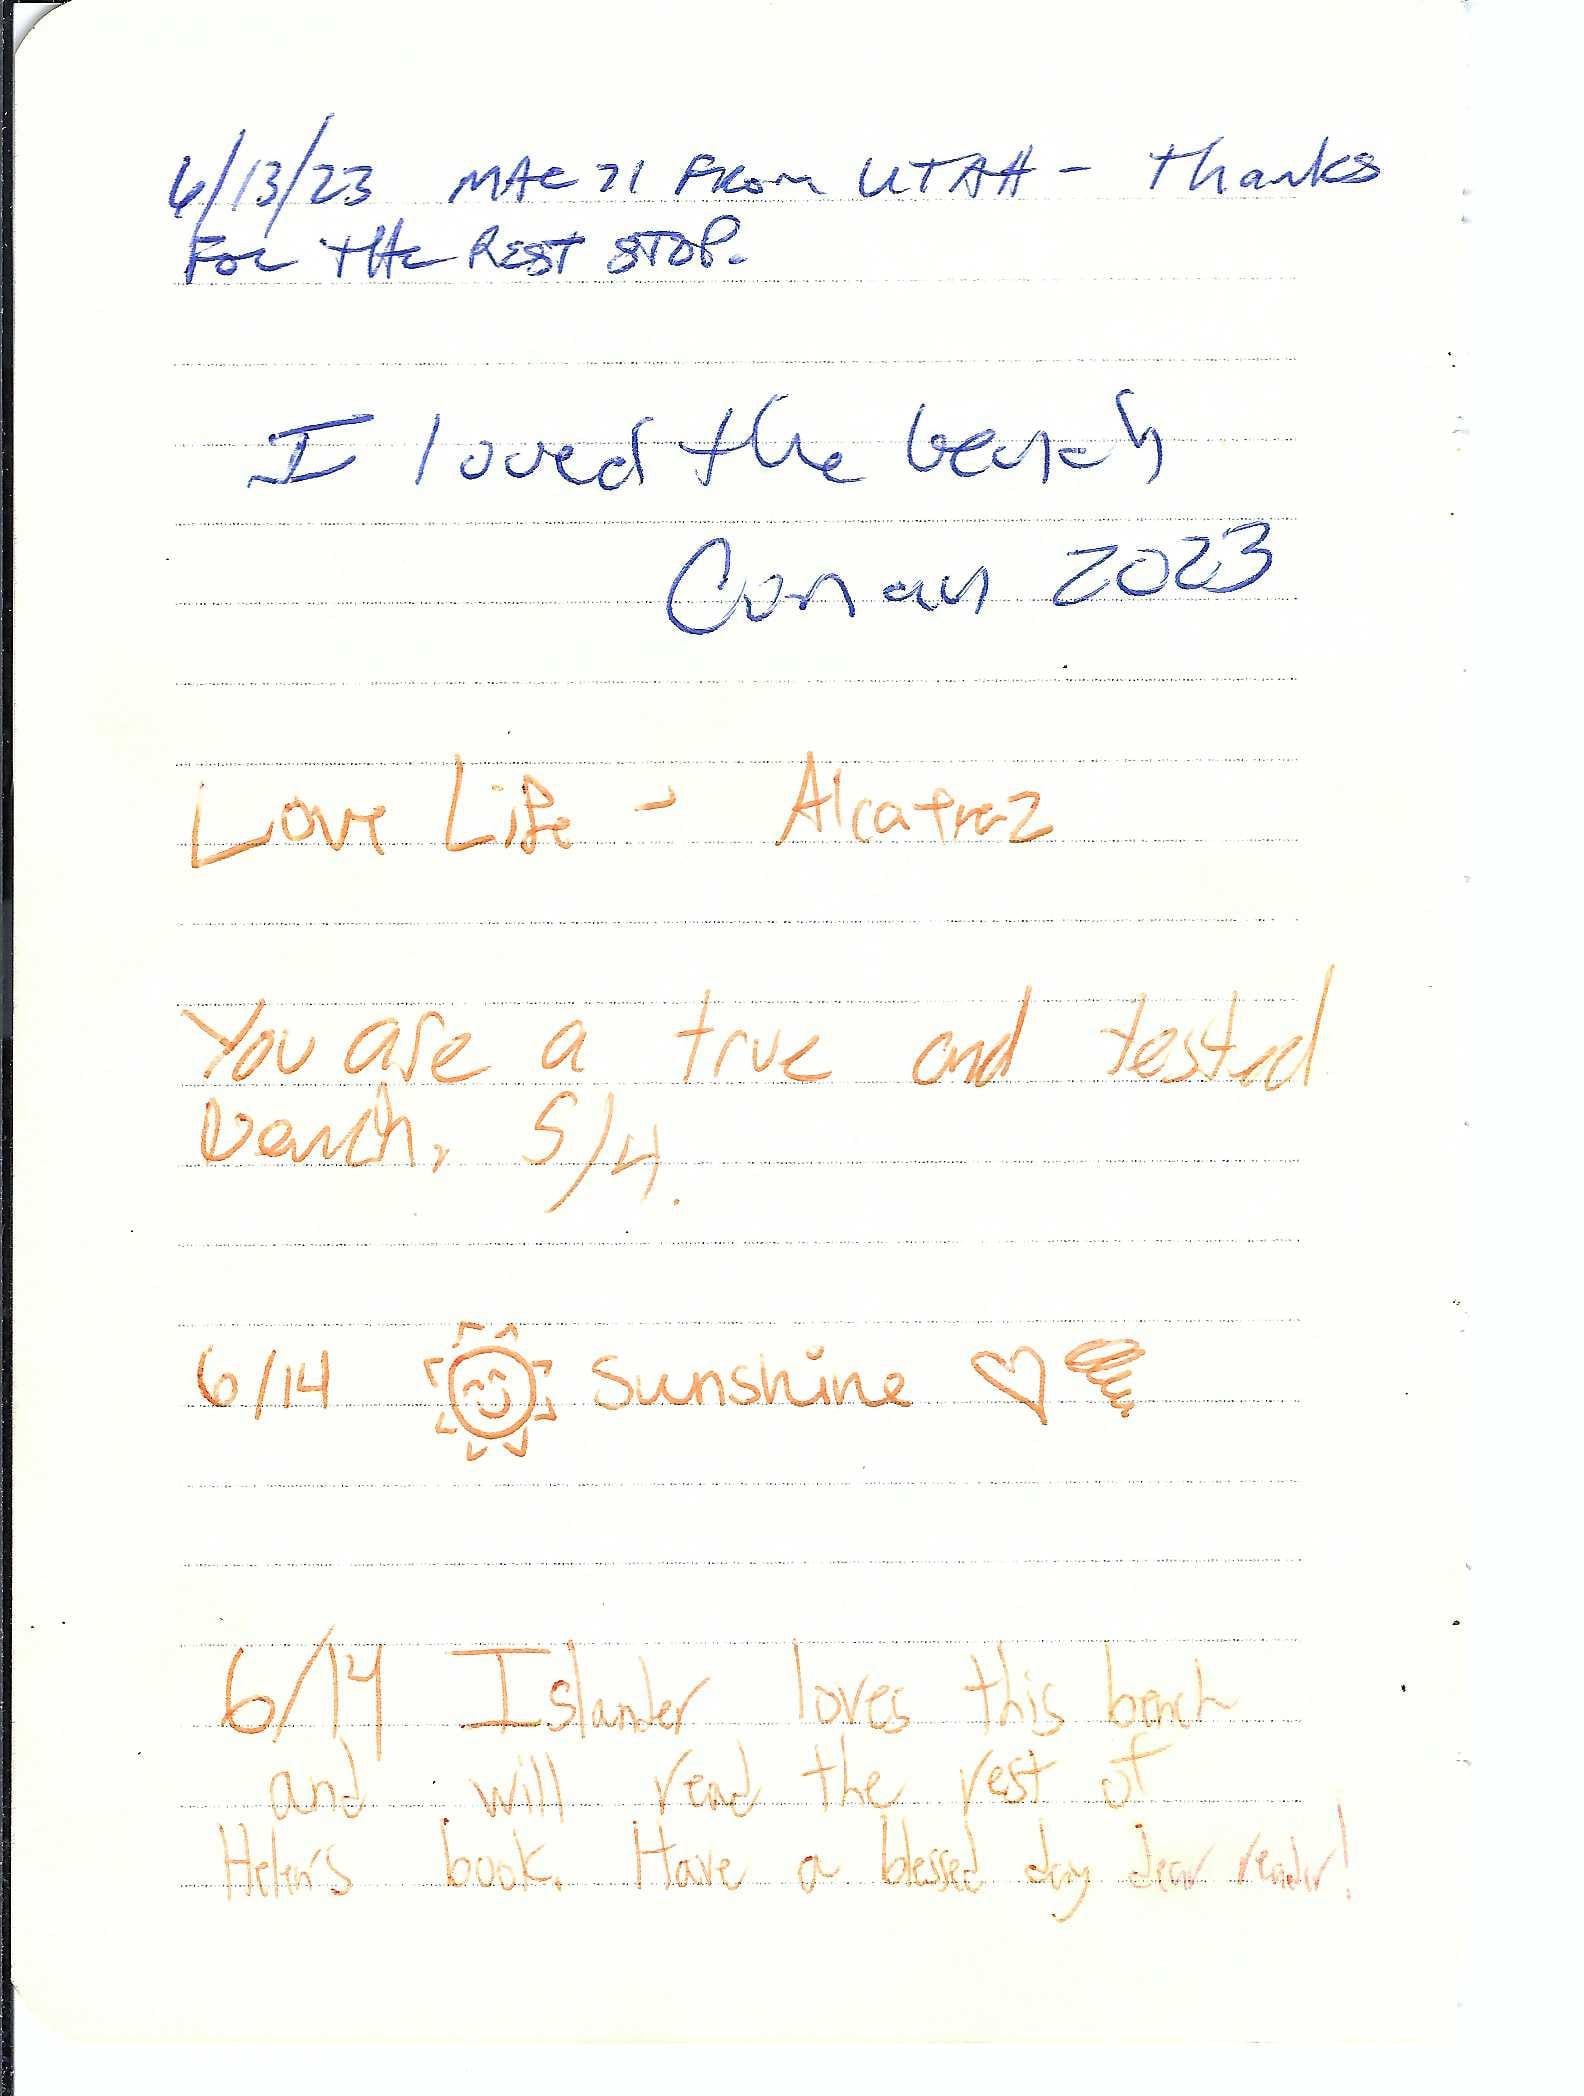 6/13/23 MAC 71 FROM UTAH - Thanks
FOR THE REST STOP.
I loved the bench
Conan 2023
Love Life - Alcatraz
You are a true and tested
bench. 5/4.
6/14 Sunshine
6/14 Islander loves this bench
and will read the rest of
Helen's book. Have a blessed day dear reader!